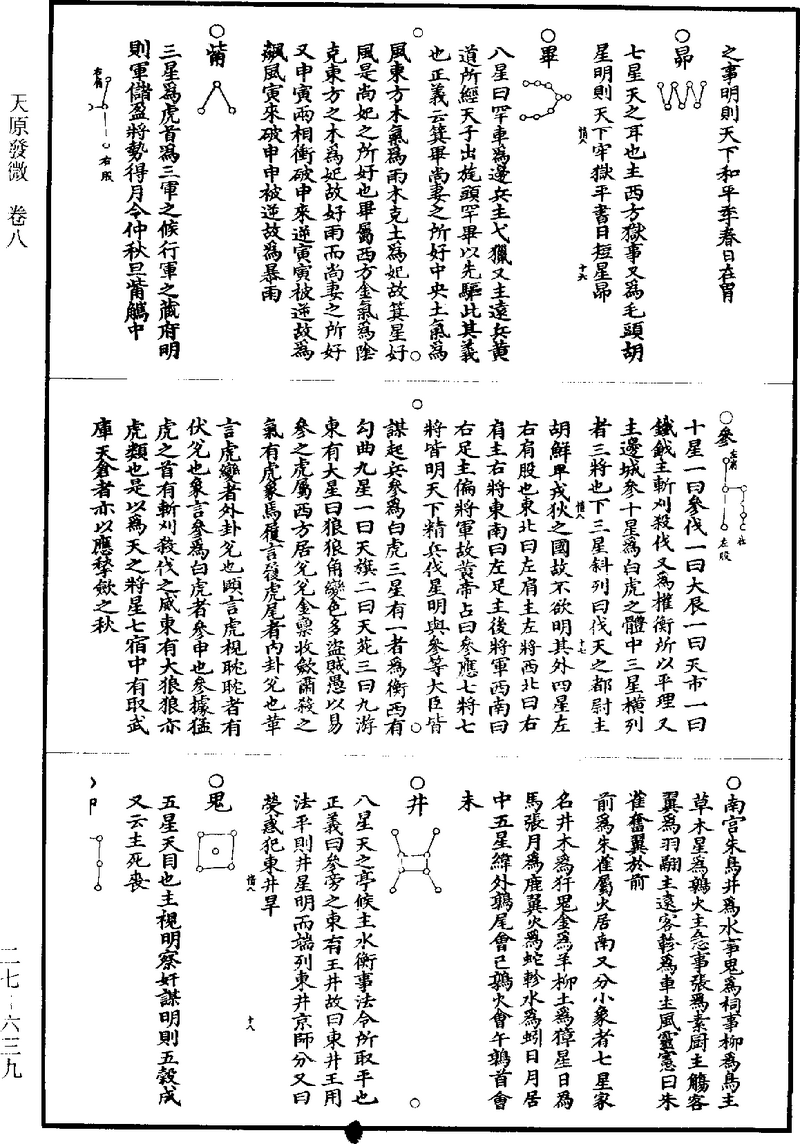 天原發微 卷八
二七—六三九
之事明則天下和平季春日在胃
昴
七星天之耳也主西方獄事又為毛頭胡
星明則天下牢獄平書日短星昴
十六
畢
八星曰罕車為邊兵主弋獵又主遠兵黃
道所經天子出旄頭罕畢以先驅此其義
也正義云箕畢尚妻之所好中央土氣為
風東方木氣為雨木克土為妃故箕星好
風是尚妃之所好也畢屬西方金氣為陰
克東方之木為妃故好雨而尚妻之所好
又申寅兩相衝破申來逆寅寅被逆故為
飆風寅來破申申被逆故為暴雨
觜
三星為虎首為三軍之候行軍之藏府明
則軍儲盈將勢得月令仲秋旦觜觿中
右肩
右股
參
左肩
左股
十星一曰參伐一曰大辰一曰天市一曰
鐵鉞主斬刈殺伐又為權衡所以平理又
主邊城參十星為白虎之體中三星橫列
者三將也下三星斜列曰伐天之都尉主
十七
胡鮮卑戎狄之國故不欲明其外四星左
右肩股也東北曰左肩主左將西北曰右
肩主右將東南曰左足主後將軍西南曰
右足主偏將軍故黃帝占曰參應七將七
將皆明天下精兵伐星明與參等大臣皆
謀起兵參為白虎三星有一者為衡西有
勾曲九星一曰天旗二曰天苑三曰九游
東有大星曰狼狼角變色多盜賊愚以易
參之虎屬西方居兌兌金稟收斂肅殺之
氣有虎象焉履言履虎尾者內卦兌也革
言虎變者外卦兌也頤言虎視眈眈者有
伏兌也象言參為白虎者參申也參據猛
虎之首有斬刈殺伐之威東有大狼狼亦
虎類也是以為天之將星七宿中有取武
庫天倉者亦以應擊斂之秋
南宮朱鳥井為水事鬼為祠事柳為鳥主
草木星為鶉火主急事張為素廚主觴客
翼為羽翮主遠客軫為車主風靈憲曰朱
雀奮翼於前
前為朱雀屬火居南又分小象者七星家
名井木為犴鬼金為羊柳土為獐星日為
馬張月為鹿翼火為蛇軫水為蚓日月居
中五星緯外鶉尾會巳鶉火會午鶉首會
未
井
八星天之亭候主水衡事法令所取平也
正義曰參旁之東有玉井故曰東井王用
法平則井星明而端列東井京師分又曰
熒惑犯東井旱
十八
鬼
五星天目也主視明察奸謀明則五穀成
又云主死喪